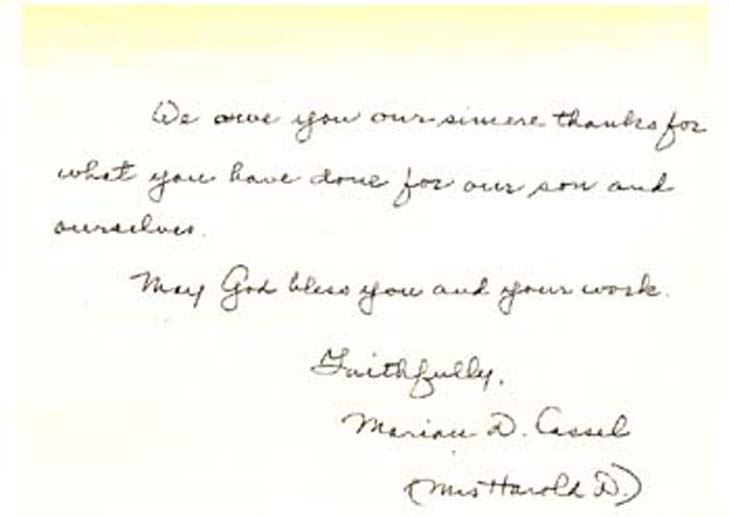 We owe you our sincere thanks for
what you have done for our son and
ourselves.
May God bless you and your work.
Faithfully,
Marian D. Cassel
(Mrs Harold D.)